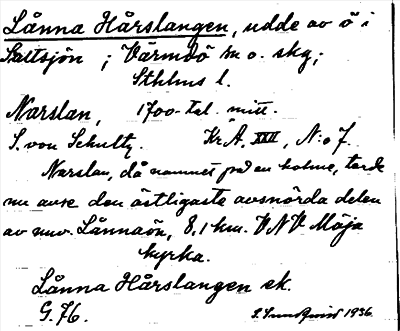 Lånna Hårslangen, udde av ö i
Saltsjön ; Värmdö sn o. skg;
Sthlms l.
Narslan, 1700-tal. mitt.
S. von Schultz. Kr. A. XXII, N:o 7.
Narslan, då namnet på en holme, torde
nu avse den östligaste avsnörda delen
av nuv. Lånnaön, 8,1 km. VNV Möja
kyrka.
Lånna Hårslangen ek.
G. 76. 1936.